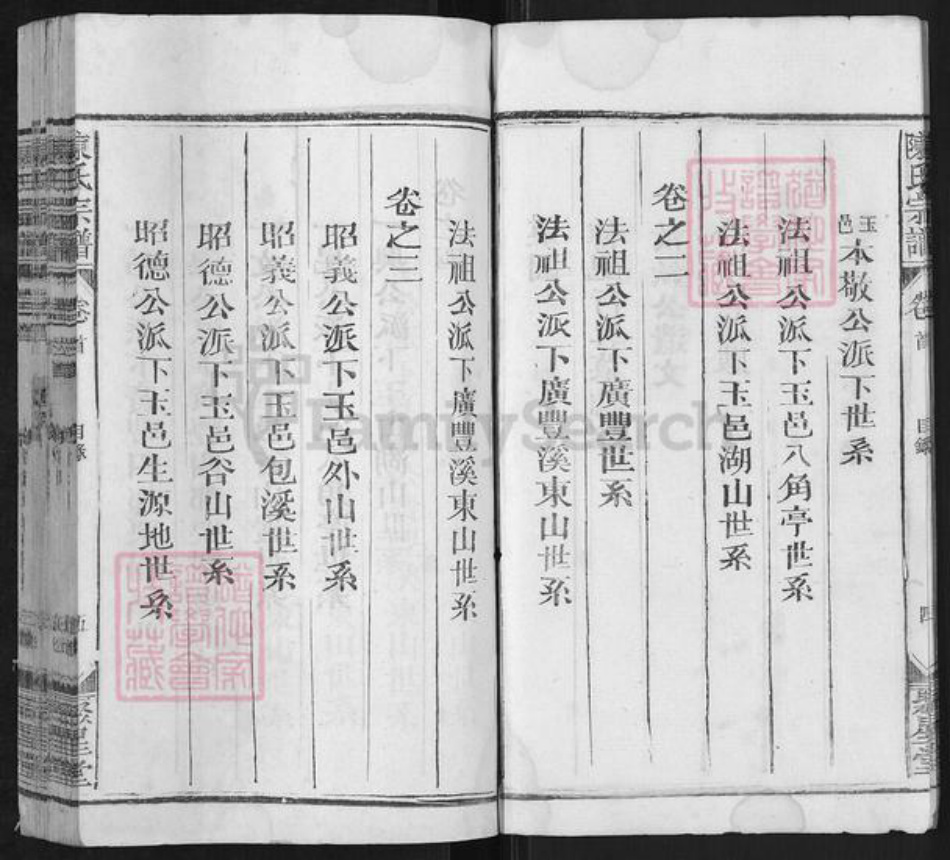 陳氏宗譜 卷首 目錄 四 聚星堂
玉邑本敬公派下世系
法祖公派下玉邑八角亭世系
法祖公派下玉邑湖山世系
卷之二
法祖公派下廣豐世系
法祖公派下廣豐溪東山世系
法祖公派下廣豐溪東山世系
卷之三
昭義公派下玉邑外山世系
昭義公派下玉邑包溪世系
昭德公派下玉邑谷山世系
昭德公派下玉邑生源地世系
陳氏宗譜 卷首 目錄 五 聚星堂
FamilySearch